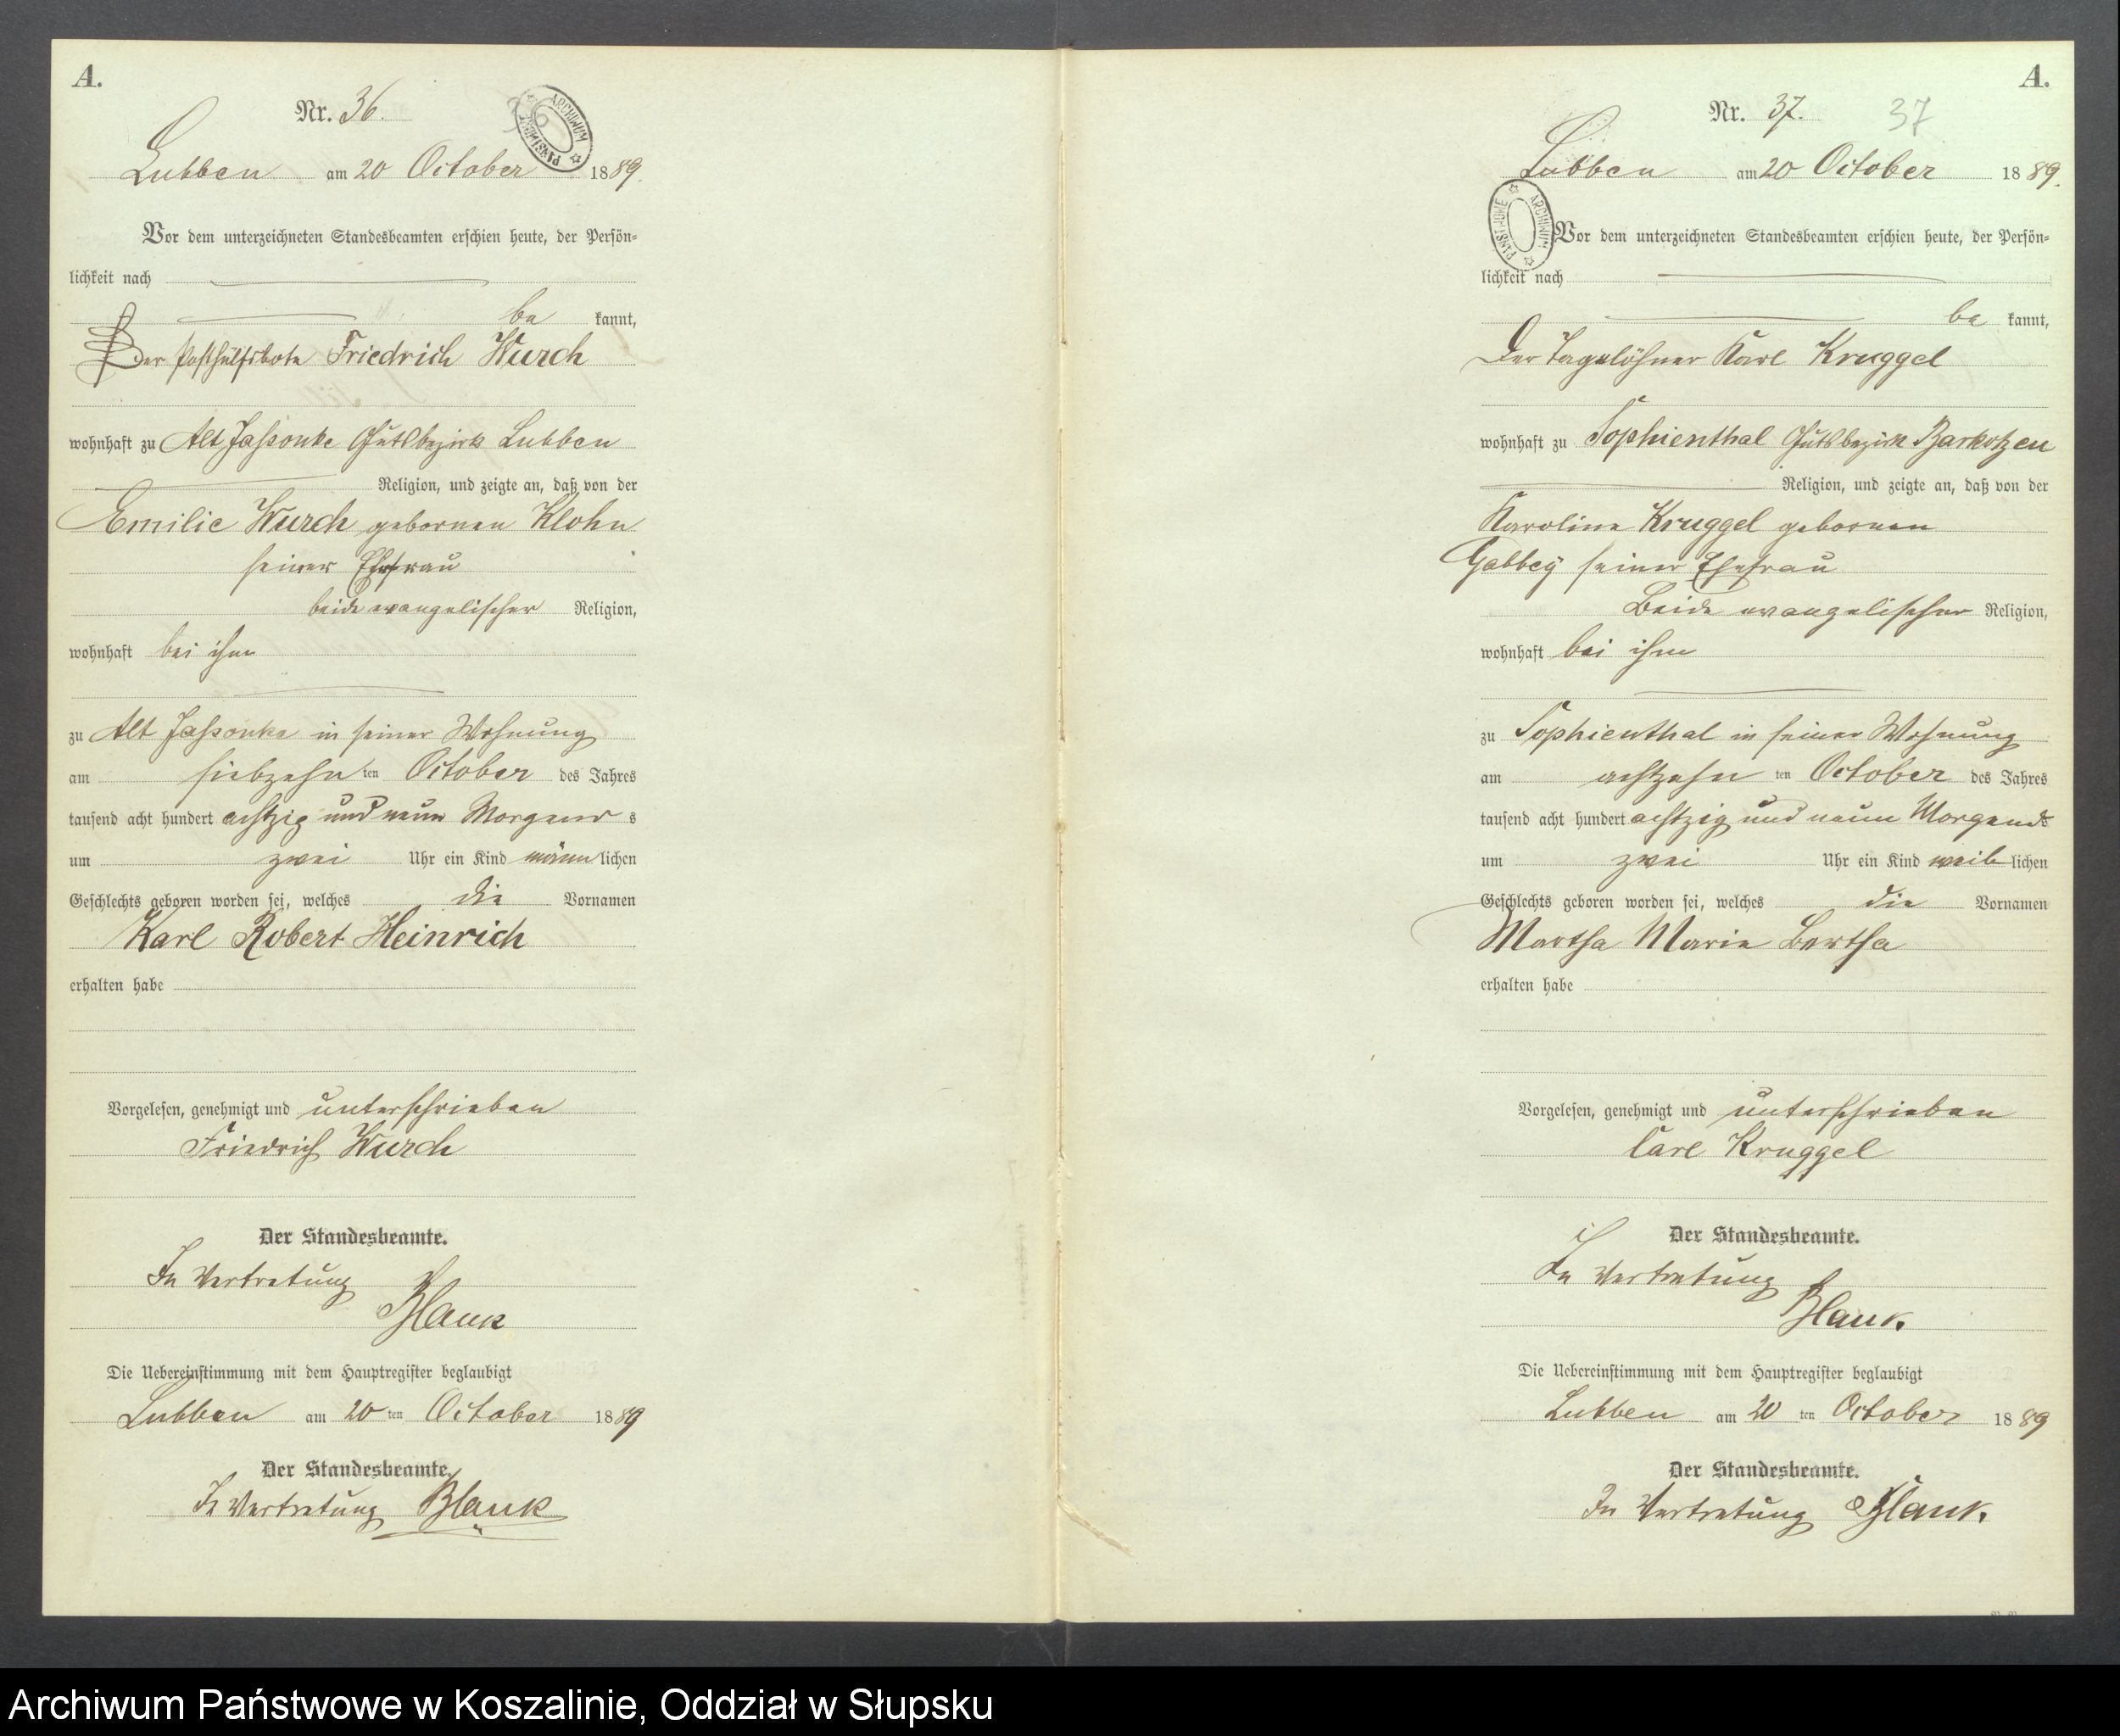 A.
Nr. 36.
36
ARCHIWUM PAŃSTWOWE
Lubben am 20 October 1889.
Vor dem unterzeichneten Standesbeamten erschien heute, der Persön-
lichkeit nach
be kannt,
Der Posthülfsbote Friedrich Wurch
wohnhaft zu Alt Jassonke Gutsbezirk Lubben
Religion, und zeigte an, daß von der
Emilie Wurch gebornen Klohn
seiner Ehefrau
beide evangelischer Religion,
wohnhaft bei ihm
zu Alt Jassonke in seiner Wohnung
am siebzehn ten October des Jahres
tausend acht hundert achtzig und neun Morgens
um zwei Uhr ein Kind männlichen
Geschlechts geboren worden sei, welches die Vornamen
Karl Robert Heinrich
erhalten habe
Vorgelesen, genehmigt und unterschrieben
Friedrich Wurch
Der Standesbeamte.
In Vertretung
Blank
Die Uebereinstimmung mit dem Hauptregister beglaubigt
Lubben am 20 ten October 1889
Der Standesbeamte.
In Vertretung Blank
A.
Nr. 37.
37
Lubben am 20 October 1889.
ARCHIWUM PAŃSTWOWE
Vor dem unterzeichneten Standesbeamten erschien heute, der Persön-
lichkeit nach
be kannt,
Der Tagelöhner Karl Kruggel
wohnhaft zu Sophienthal Gutsbezirk Barkotzen
Religion, und zeigte an, daß von der
Karoline Kruggel gebornen
Gabbey seiner Ehefrau
Beide evangelischer Religion,
wohnhaft bei ihm
zu Sophienthal in seiner Wohnung
am achtzehn ten October des Jahres
tausend acht hundert achtzig und neun Morgends
um zwei Uhr ein Kind weiblichen
Geschlechts geboren worden sei, welches die Vornamen
Martha Marie Bertha
erhalten habe
Vorgelesen, genehmigt und unterschrieben
Carl Kruggel
Der Standesbeamte.
In Vertretung
Blank.
Die Uebereinstimmung mit dem Hauptregister beglaubigt
Lubben am 20 ten October 1889
Der Standesbeamte.
In Vertretung Blank.
Archiwum Państwowe w Koszalinie, Oddział w Słupsku